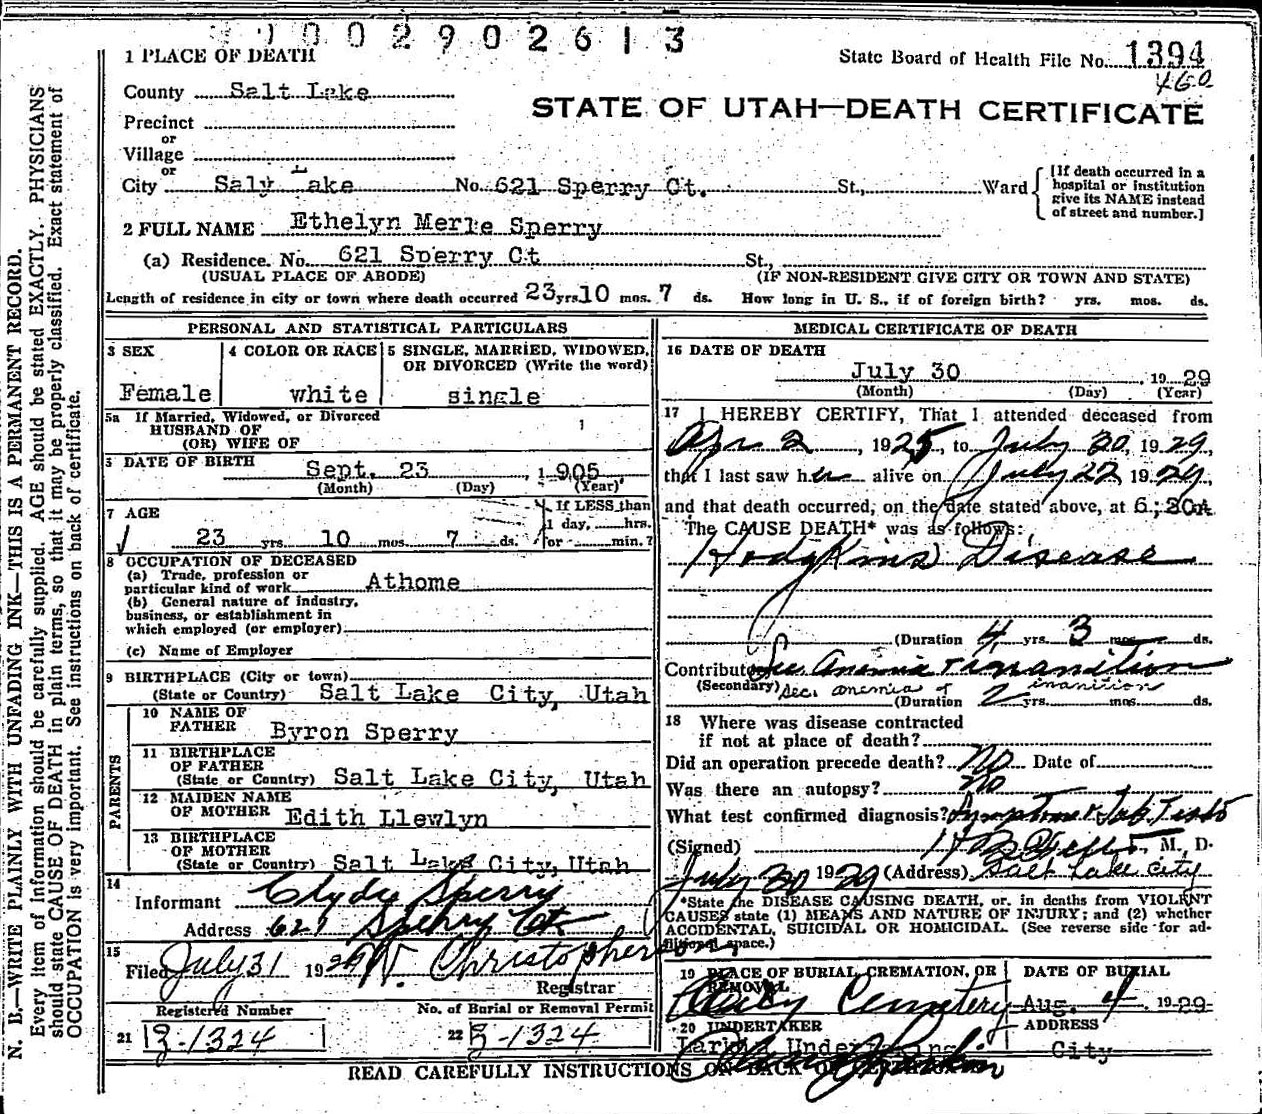 0002902613
1 PLACE OF DEATH
State Board of Health File No. 1394
460
County Salt Lake
STATE OF UTAH—DEATH CERTIFICATE
Precinct
or
Village
or
City Saly Lake No. 621 Sperry Ct. St., Ward
[If death occurred in a
hospital or institution
give its NAME instead
of street and number.]
2 FULL NAME Ethelyn Merle Sperry
(a) Residence. No. 621 Sperry Ct St.,
(USUAL PLACE OF ABODE) (IF NON-RESIDENT GIVE CITY OR TOWN AND STATE)
Length of residence in city or town where death occurred 23 yrs. 10 mos. 7 ds. How long in U. S., if of foreign birth? yrs. mos. ds.
PERSONAL AND STATISTICAL PARTICULARS
3 SEX
Female
4 COLOR OR RACE
white
5 SINGLE, MARRIED, WIDOWED,
OR DIVORCED (Write the word)
single
5a If Married, Widowed, or Divorced
HUSBAND OF
(OR) WIFE OF
DATE OF BIRTH
Sept. 23, 1905
(Month) (Day) (Year)
7 AGE
23 yrs. 10 mos. 7 ds.
If LESS than
1 day, hrs.
or min.?
8 OCCUPATION OF DECEASED
(a) Trade, profession or
particular kind of work Athome
(b) General nature of industry,
business, or establishment in
which employed (or employer)
(c) Name of Employer
9 BIRTHPLACE (City or town)
(State or Country) Salt Lake City, Utah
PARENTS
10 NAME OF
FATHER Byron Sperry
11 BIRTHPLACE
OF FATHER
(State or Country) Salt Lake City, Utah
12 MAIDEN NAME
OF MOTHER Edith Llewlyn
13 BIRTHPLACE
OF MOTHER
(State or Country) Salt Lake City, Utah
14
Informant Clyde Sperry
Address 621 Sperry Ct.
15
Filed July 31 1929 W. Christopherson
Registrar
Registered Number
21 B-1324
No. of Burial or Removal Permit
22 B-1324
MEDICAL CERTIFICATE OF DEATH
16 DATE OF DEATH
July 30, 1929
(Month) (Day) (Year)
17 I HEREBY CERTIFY, That I attended deceased from
Apr 2, 1925, to July 30, 1929,
that I last saw her alive on July 22 1929,
and that death occurred, on the date stated above, at 6:30A
The CAUSE DEATH* was as follows:
Hodgkins Disease
(Duration 4 yrs. 3 mos. ds.
Contributory Sec Anemia + inanition
(Secondary) Sec. anemia of inanition
(Duration 2 yrs. mos. ds.
18 Where was disease contracted
if not at place of death?
Did an operation precede death? No Date of
Was there an autopsy? No
What test confirmed diagnosis? Symptoms & Lab Tests
(Signed) M., D.
July 30 1929 (Address) Salt Lake City
*State the DISEASE CAUSING DEATH, or, in deaths from VIOLENT
CAUSES state (1) MEANS AND NATURE OF INJURY; and (2) whether
ACCIDENTAL, SUICIDAL OR HOMICIDAL. (See reverse side for ad-
ditional space.)
19 PLACE OF BURIAL, CREMATION, OR
REMOVAL
City Cemetery
DATE OF BURIAL
Aug. 4 1929
20 UNDERTAKER
Larkin Undertaking
ADDRESS
City
READ CAREFULLY INSTRUCTIONS ON BACK OF CERTIFICATE
N. B.—WRITE PLAINLY WITH UNFADING INK—THIS IS A PERMANENT RECORD.
Every item of information should be carefully supplied. AGE should be stated EXACTLY. PHYSICIANS
should state CAUSE OF DEATH in plain terms, so that it may be properly classified. Exact statement of
OCCUPATION is very important. See instructions on back of certificate.